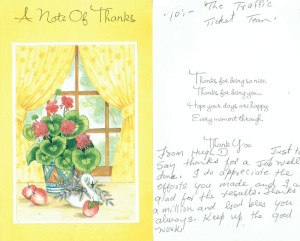 A Note Of Thanks
To:- The Traffic
Ticket Team.
Thanks for being so nice
Thanks for being you
Hope your days are happy
Every moment through
Thank You
From Hugh Just to
Say thanks for a Job well
done. I do appreciate the
efforts you made and I am
glad for the results. Thanks
a million and God bless you
always. Keep up the good
work!